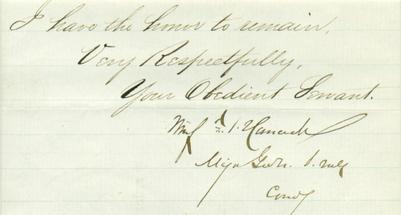 I have the honor to remain,
Very Respectfully,
Your Obedient Servant.
Winf S. Hancock
Maj Genl.
Comdg